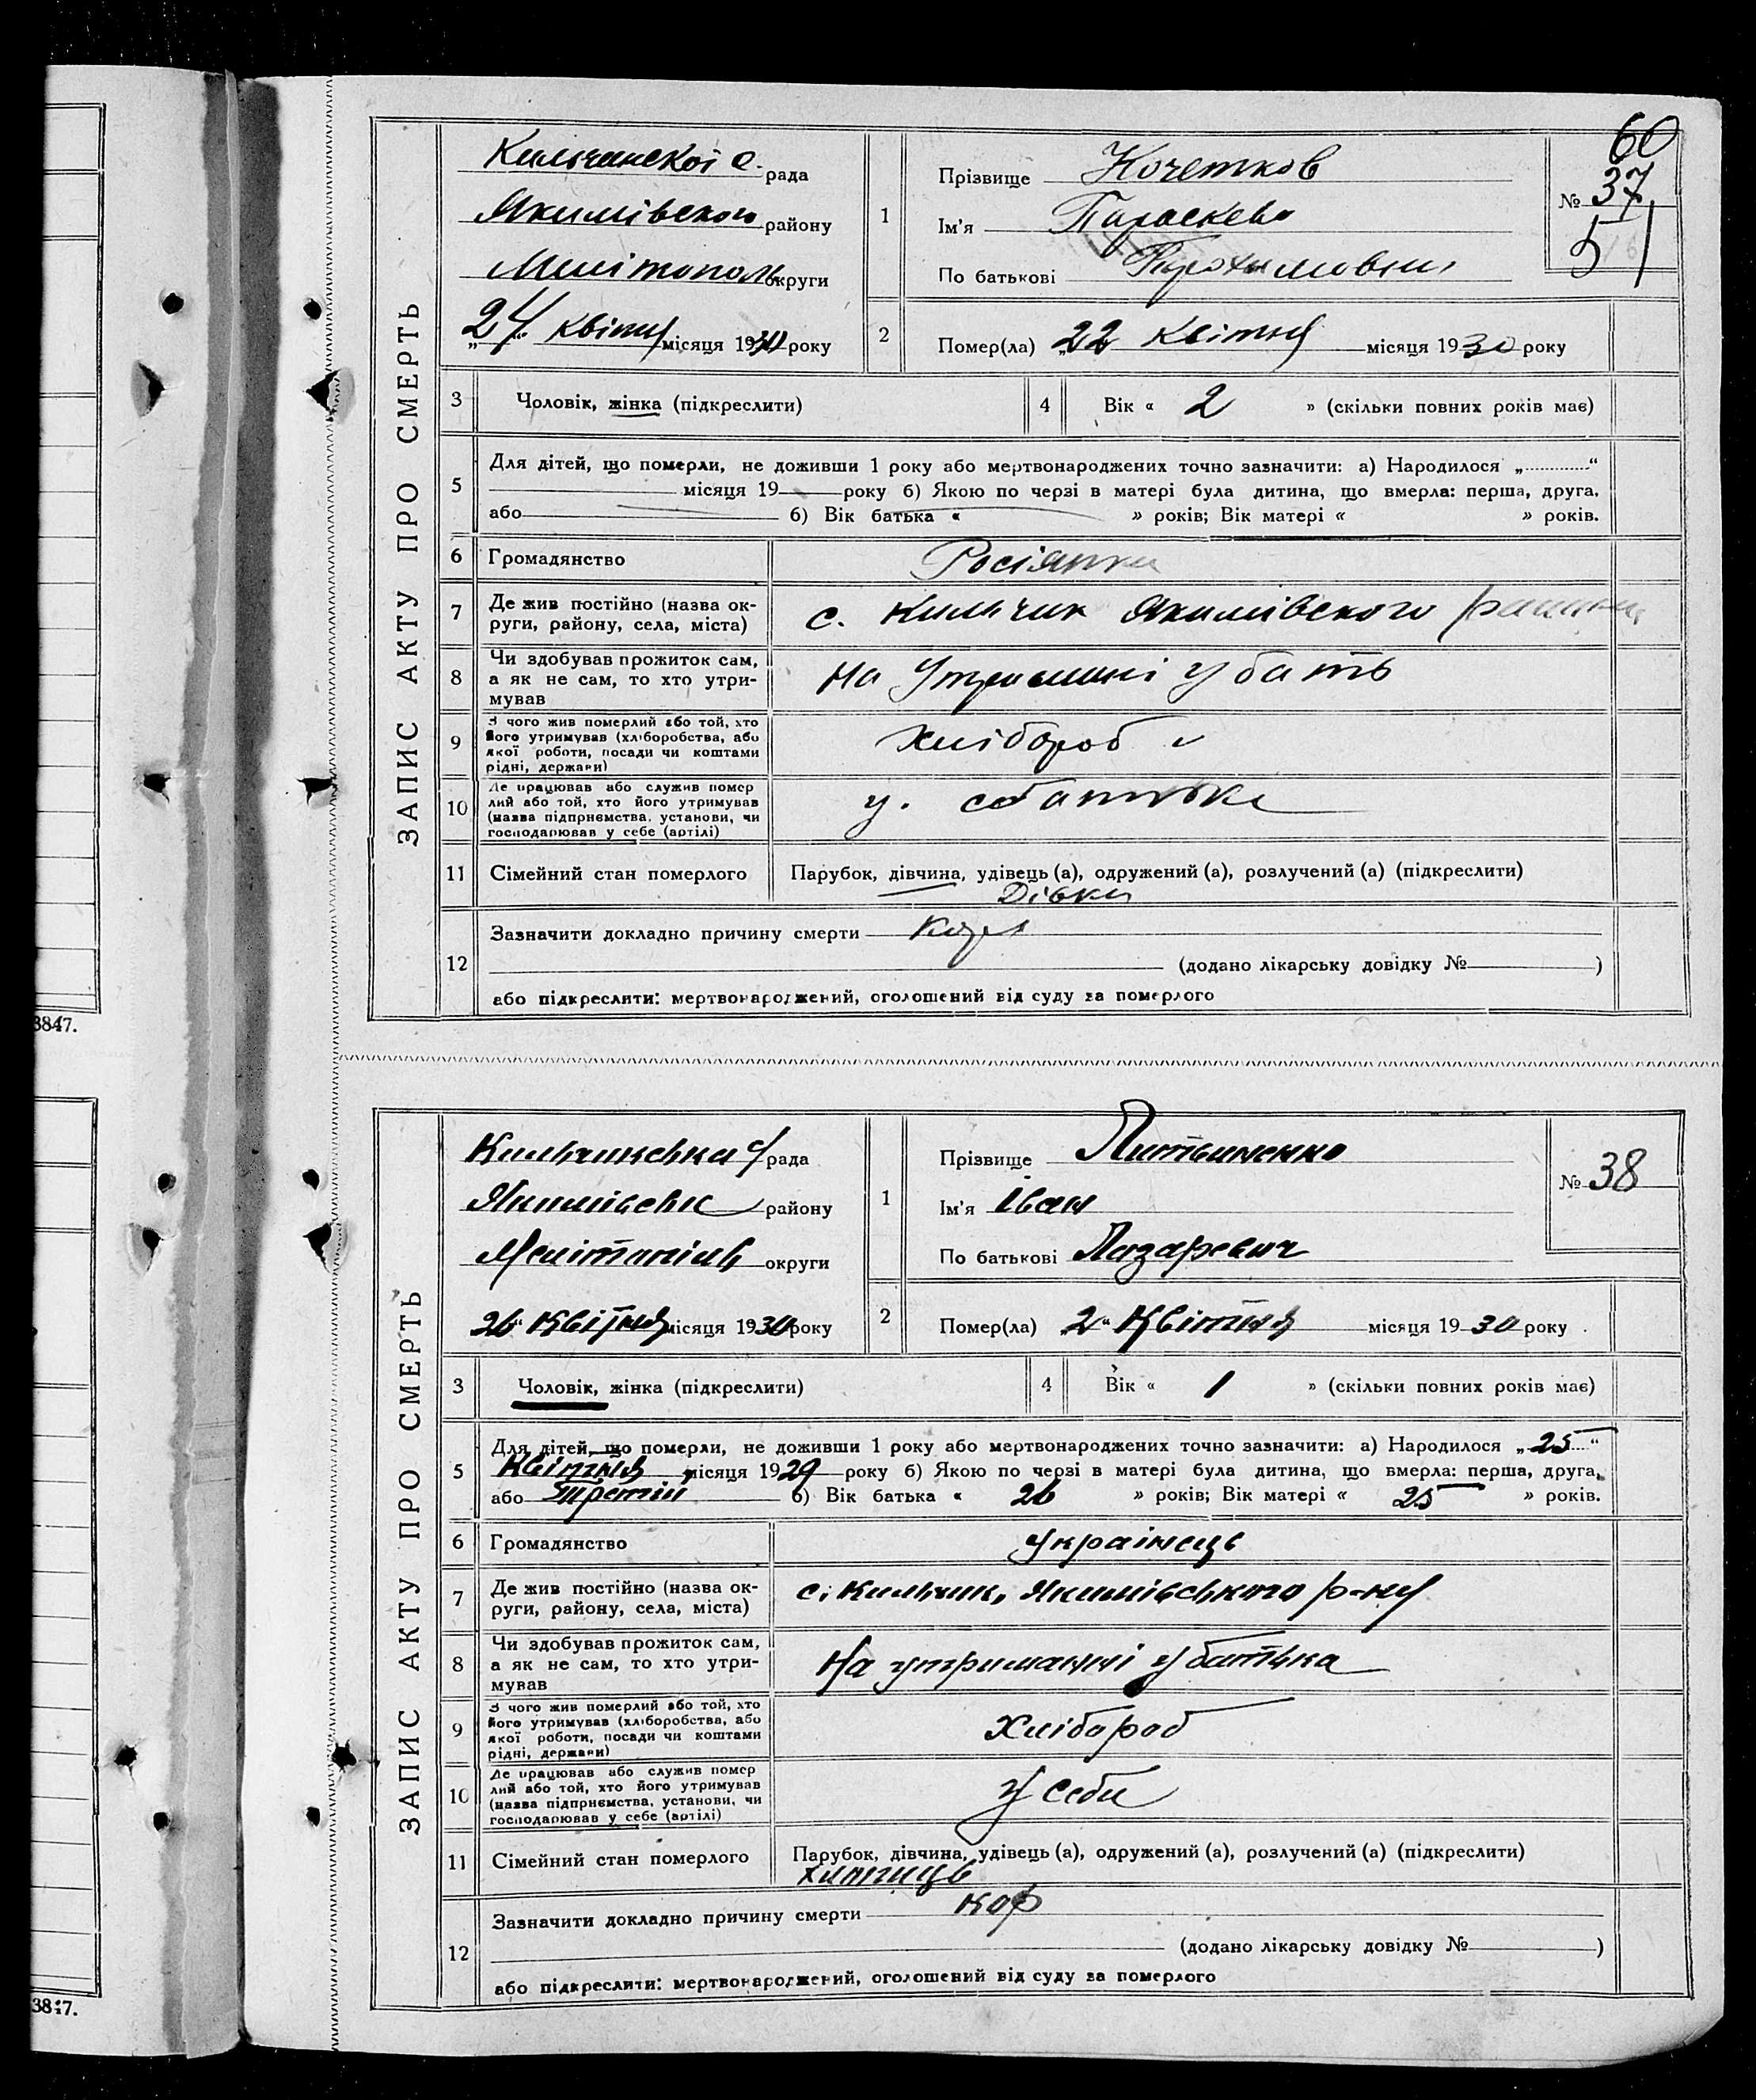 3847.
3847.
ЗАПИС АКТУ ПРО СМЕРТЬ
60
Кильчанскої с. рада
Якимівского району
Мелітополь округи
„24“ квітня місяця 1930 року
1
Прізвище Кочетков
Ім'я Параскева
По батькові
№ 37
51
2
Помер(ла) „22 квітня місяця 1930 року
3
Чоловік, жінка (підкреслити)
4
Вік « 2 » (скільки повних років має)
5
Для дітей, що померли, не доживши 1 року або мертвонароджених точно зазначити: а) Народилося „ “
місяця 19 року б) Якою по черзі в матері була дитина, що вмерла: перша, друга,
або б) Вік батька « » років; Вік матері « » років.
6
Громадянство Росіянка
7
Де жив постійно (назва ок-
руги, району, села, міста)
с. Кильчик Якимівского району
8
Чи здобував прожиток сам,
а як не сам, то хто утри-
мував
на утриманні у бать
9
З чого жив померлий або той, хто
його утримував (хліборобства, або
якої роботи, посади чи коштами
рідні, держави)
Хлібороб
10
Де працював або служив помер
лий або той, хто його утримував
(назва підприємства, установи, чи
господарював у себе (артілі)
у.
11
Сімейний стан померлого
Парубок, дівчина, удівець (а), одружений (а), розлучений (а) (підкреслити)
Дівка
12
Зазначити докладно причину смерти
(додано лікарську довідку № )
або підкреслити: мертвонароджений, оголошений від суду за померлого
ЗАПИС АКТУ ПРО СМЕРТЬ
рада
району
Мелітопіль округи
26“ Квітня місяця 1930 року
1
Прізвище Литвиненко
Ім'я Іван
По батькові Лазаревич
№ 38
2
Помер(ла) „2“ Квітня місяця 1930 року
3
Чоловік, жінка (підкреслити)
4
Вік « 1 » (скільки повних років має)
5
Для дітей, що померли, не доживши 1 року або мертвонароджених точно зазначити: а) Народилося „25“
Квітня місяця 1929 року б) Якою по черзі в матері була дитина, що вмерла: перша, друга,
або третій б) Вік батька « 26 » років; Вік матері « 25 » років.
6
Громадянство Українець
7
Де жив постійно (назва ок-
руги, району, села, міста)
с. Кильчик, Якимівського р-ну
8
Чи здобував прожиток сам,
а як не сам, то хто утри-
мував
На утриманні у батька
9
З чого жив померлий або той, хто
його утримував (хліборобства, або
якої роботи, посади чи коштами
рідні, держави)
Хлібороб
10
Де працював або служив помер
лий або той, хто його утримував
(назва підприємства, установи, чи
господарював у себе (артілі)
у себи
11
Сімейний стан померлого
Парубок, дівчина, удівець (а), одружений (а), розлучений (а) (підкреслити)
хлопиць
12
Зазначити докладно причину смерти кор
(додано лікарську довідку № )
або підкреслити: мертвонароджений, оголошений від суду за померлого